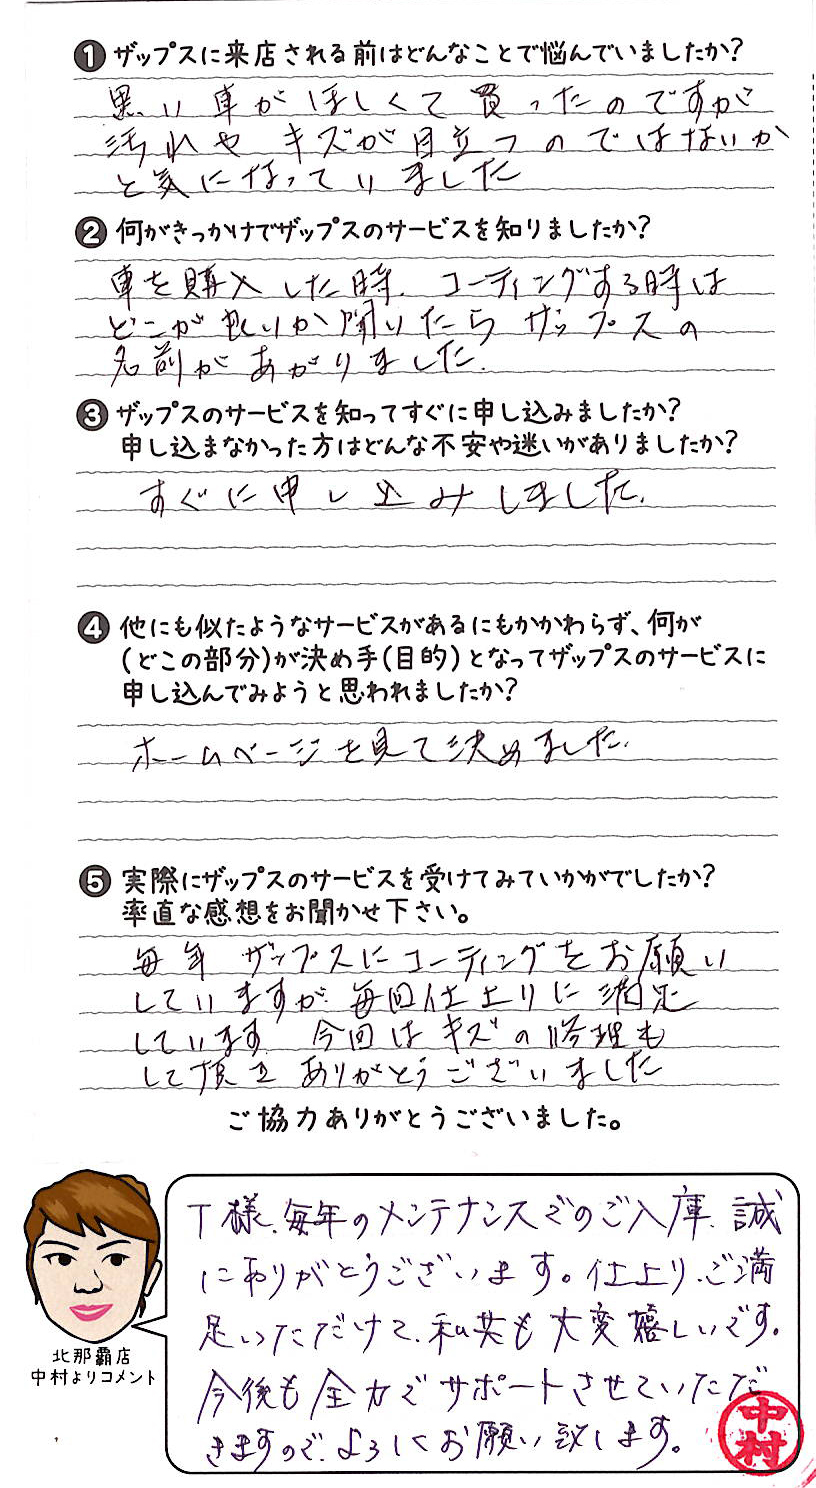 ❶ ザップスに来店される前はどんなことで悩んでいましたか?
黒い車がほしくて買ったのですが
汚れやキズが目立つのではないか
と気になっていました
❷ 何がきっかけでザップスのサービスを知りましたか?
車を購入した時、コーティングする時は
どこが良いか聞いたらザップスの
名前があがりました。
❸ ザップスのサービスを知ってすぐに申し込みましたか?
申し込まなかった方はどんな不安や迷いがありましたか?
すぐに申し込みしました。
❹ 他にも似たようなサービスがあるにもかかわらず、何が
(どこの部分)が決め手(目的)となってザップスのサービスに
申し込んでみようと思われましたか?
ホームページを見て決めました。
❺ 実際にザップスのサービスを受けてみていかがでしたか?
率直な感想をお聞かせ下さい。
毎年ザップスにコーティングをお願い
していますが、毎回仕上りに満足
しています。今回はキズの修理も
して頂きありがとうございました
ご協力ありがとうございました。
T様、毎年のメンテナンスでのご入庫、誠
にありがとうございます。仕上り、ご満
足いただけて、私共も大変嬉しいです。
今後も全力でサポートさせていただ
きますので、よろしくお願い致します。
北那覇店
中村よりコメント
中村